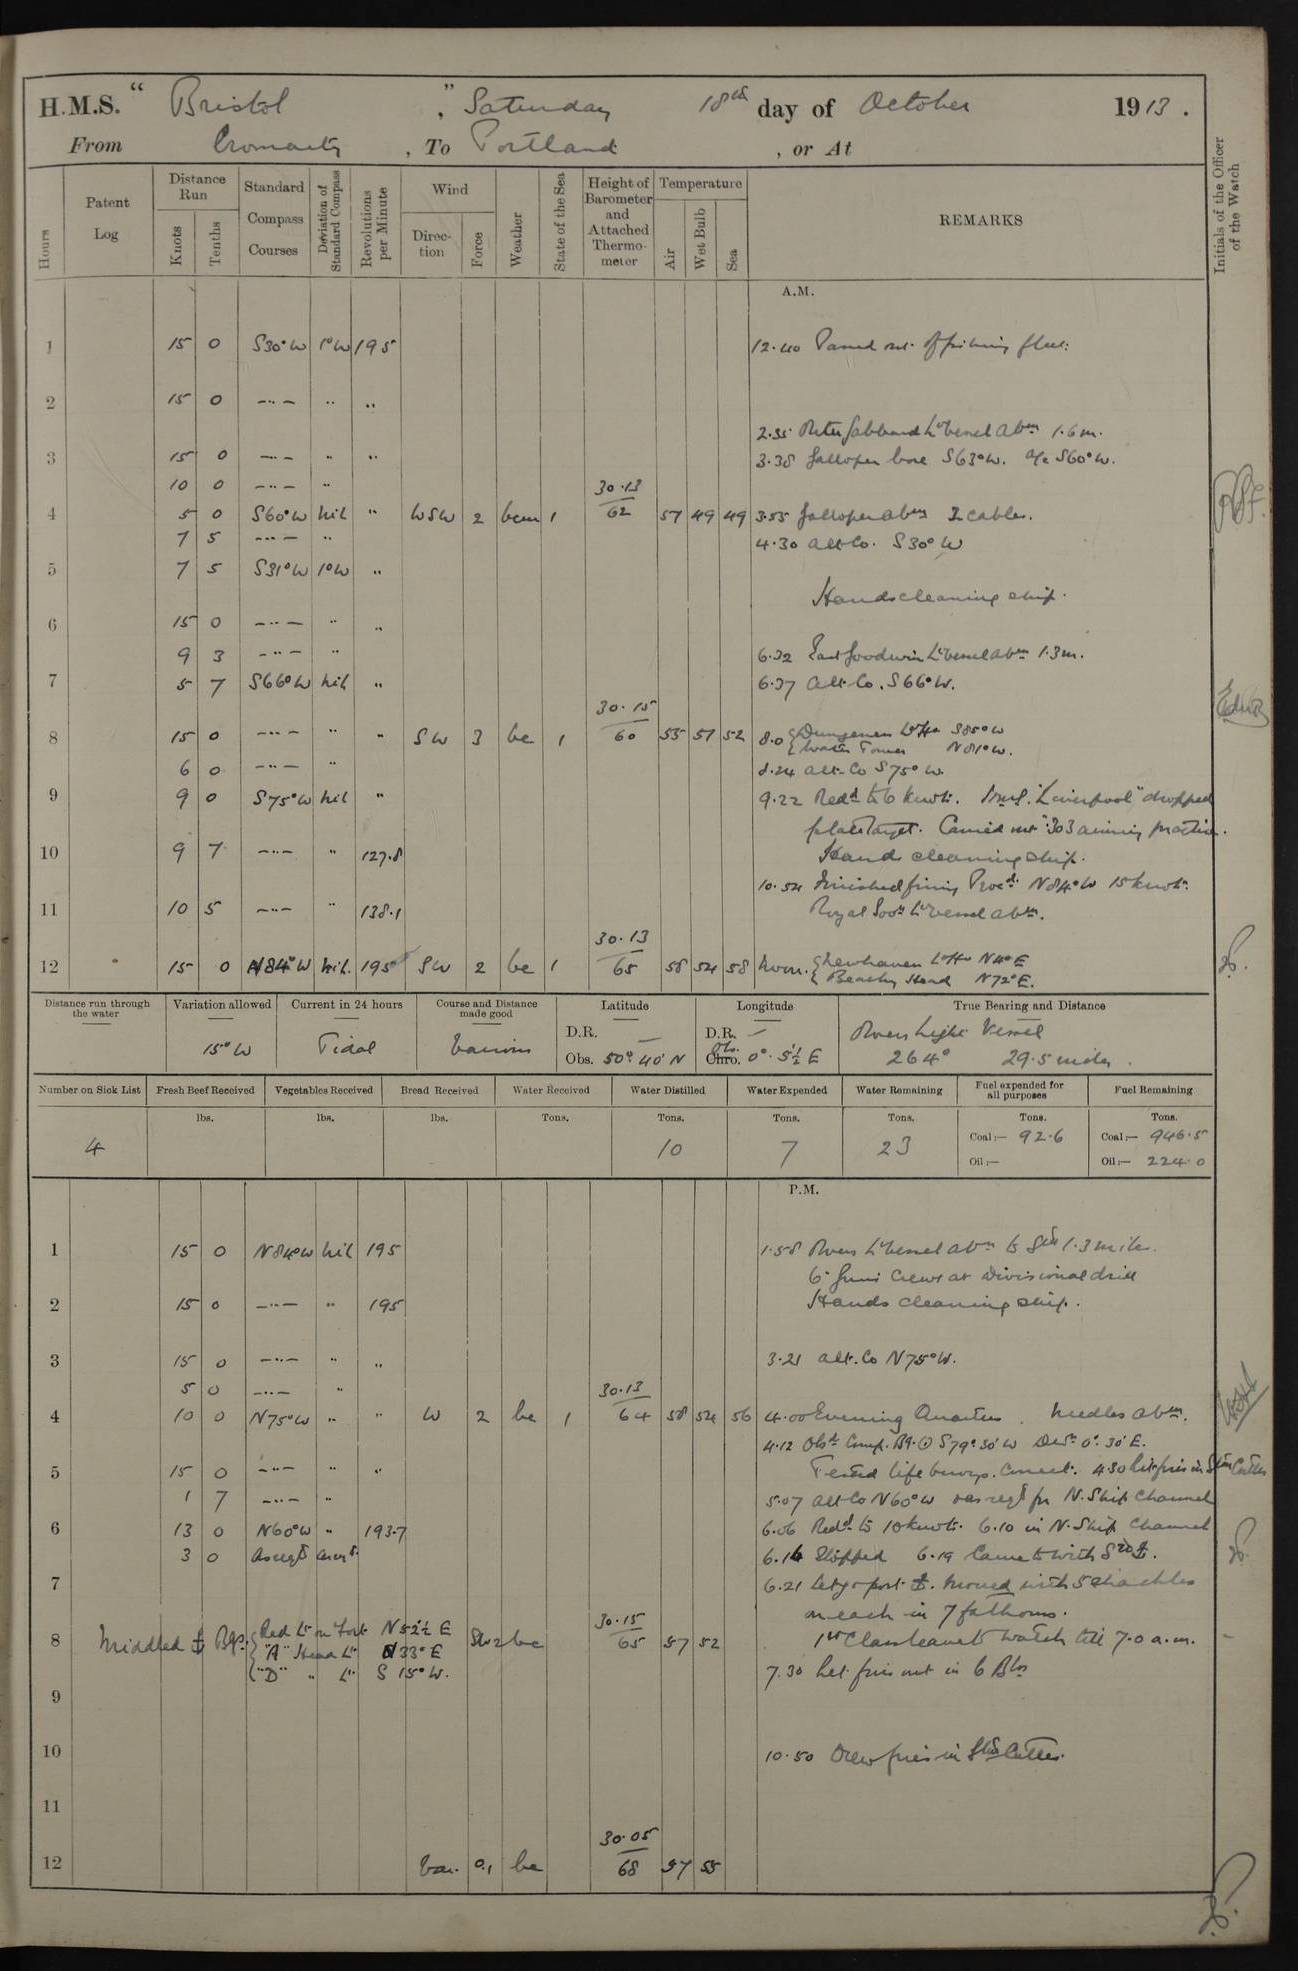 H.M.S. "Bristol", Saturday 18th day of October 1913.
From Cromarty, To Portland, or At
Hours
Patent Log
Distance Run
Knots
Tenths
Standard Compass Courses
Deviation of Standard Compass
Revolutions per Minute
Wind
Direction
Force
Weather
State of the Sea
Height of Barometer and Attached Thermometer
Temperature
Air
Wet Bulb
Sea
REMARKS
Initials of the Officer of the Watch
A.M.
1 15 0 S30°W 1°W 195 12.40 Passed out of fishing fleet.
2 15 0 —"— " "
2.35 Outer Gabbard Lt Vessel abm 1.6 m.
3 15 0 —"— " " 3.38 Galloper bore S63°W. a/c S60°W.
10 0 —"— " 30.13
4 5 0 S60°W nil " WSW 2 bcm 1 62 51 49 49 3.55 Galloper abm 2 cables.
7 5 —"— " 4.30 alt. Co. S30°W
5 7 5 S31°W 1°W "
Hands cleaning ship.
6 15 0 —"— " "
9 3 —"— " 6.32 East Goodwin Lt Vessel abm 1.3 m.
7 5 7 S66°W nil " 6.37 alt. Co. S66°W.
30.15
8 15 0 —"— " " SW 3 bc 1 60 55 51 52 8.0 { Dungeness Lt Ho S85°W
{ Water Tower N81°W.
6 0 —"— " 8.24 alt. Co S75°W.
9 9 0 S75°W nil " 9.22 Redd to 6 knots. H.M.S. "Liverpool" dropped
target. Carried out .303 aiming practice.
10 9 7 —"— " 127.8 Hands cleaning ship.
10.54 Finished firing Procd. N84°W 15 knots.
11 10 5 —"— " 138.1 Royal Sovn Lt Vessel abm.
30.13
12 15 0 N84°W nil. 195 SW 2 bc 1 65 58 54 58 Noon. { Newhaven Lt Ho N4°E
{ Beachy Head N72°E.
Distance run through the water
Variation allowed
Current in 24 hours
Course and Distance made good
Latitude
Longitude
True Bearing and Distance
15°W
Tidal
Various
D.R. —
Obs. 50° 40' N
D.R. —
Obs. Chro. 0° . 5½' E
Owers Light Vessel
264° 29.5 miles.
Number on Sick List
Fresh Beef Received
Vegetables Received
Bread Received
Water Received
Water Distilled
Water Expended
Water Remaining
Fuel expended for all purposes
Fuel Remaining
lbs. lbs. lbs. Tons. Tons. Tons. Tons. Tons. Tons.
4 10 7 23
Coal:— 92.6 Coal:— 946.5
Oil:— Oil:— 224.0
P.M.
1 15 0 N84°W nil 195 1.58 Owers Lt Vessel abm to Std 1.3 miles.
6" Guns Crews at Divisional drill
2 15 0 —"— " 195 Hands cleaning ship.
3 15 0 —"— " " 3.21 alt. Co N75°W.
5 0 —"— " 30.13
4 10 0 N75°W " " W 2 bc 1 64 58 54 56 4.00 Evening Quarters. Needles abm.
4.12 Obsd Comp. Bg. ☉ S79°.30'W Devn 0°.30'E.
5 15 0 —"— " " Tested life buoys. Correct. 4.30 Lit fires in Stm Cutter
1 7 —"— " 5.07 alt Co N60°W as reqd for N. Ship Channel
6 13 0 N60°W " 193.7 6.06 Redd to 10 knots. 6.10 in N. Ship Channel
3 0 As reqd as reqd 6.16 Stopped 6.19 Came to with Stbd ⚓.
7 6.21 Let go port ⚓. Moored with 5 shackles
on each in 7 fathoms.
30.15
8 Middled ⚓ Bgs. { Red Lt on Fort N52½E SW 2 bc 65 57 52 1st Class leave to Watch till 7.0 a.m.
{ "A" Head Lt N33°E
{ "D" " Lt S 15°W. 7.30 Let fires out in 6 Blrs
9
10 10.50 Drew fires in Stm Cutter.
11
30.05
12 Var. 0.1 bc 68 57 55